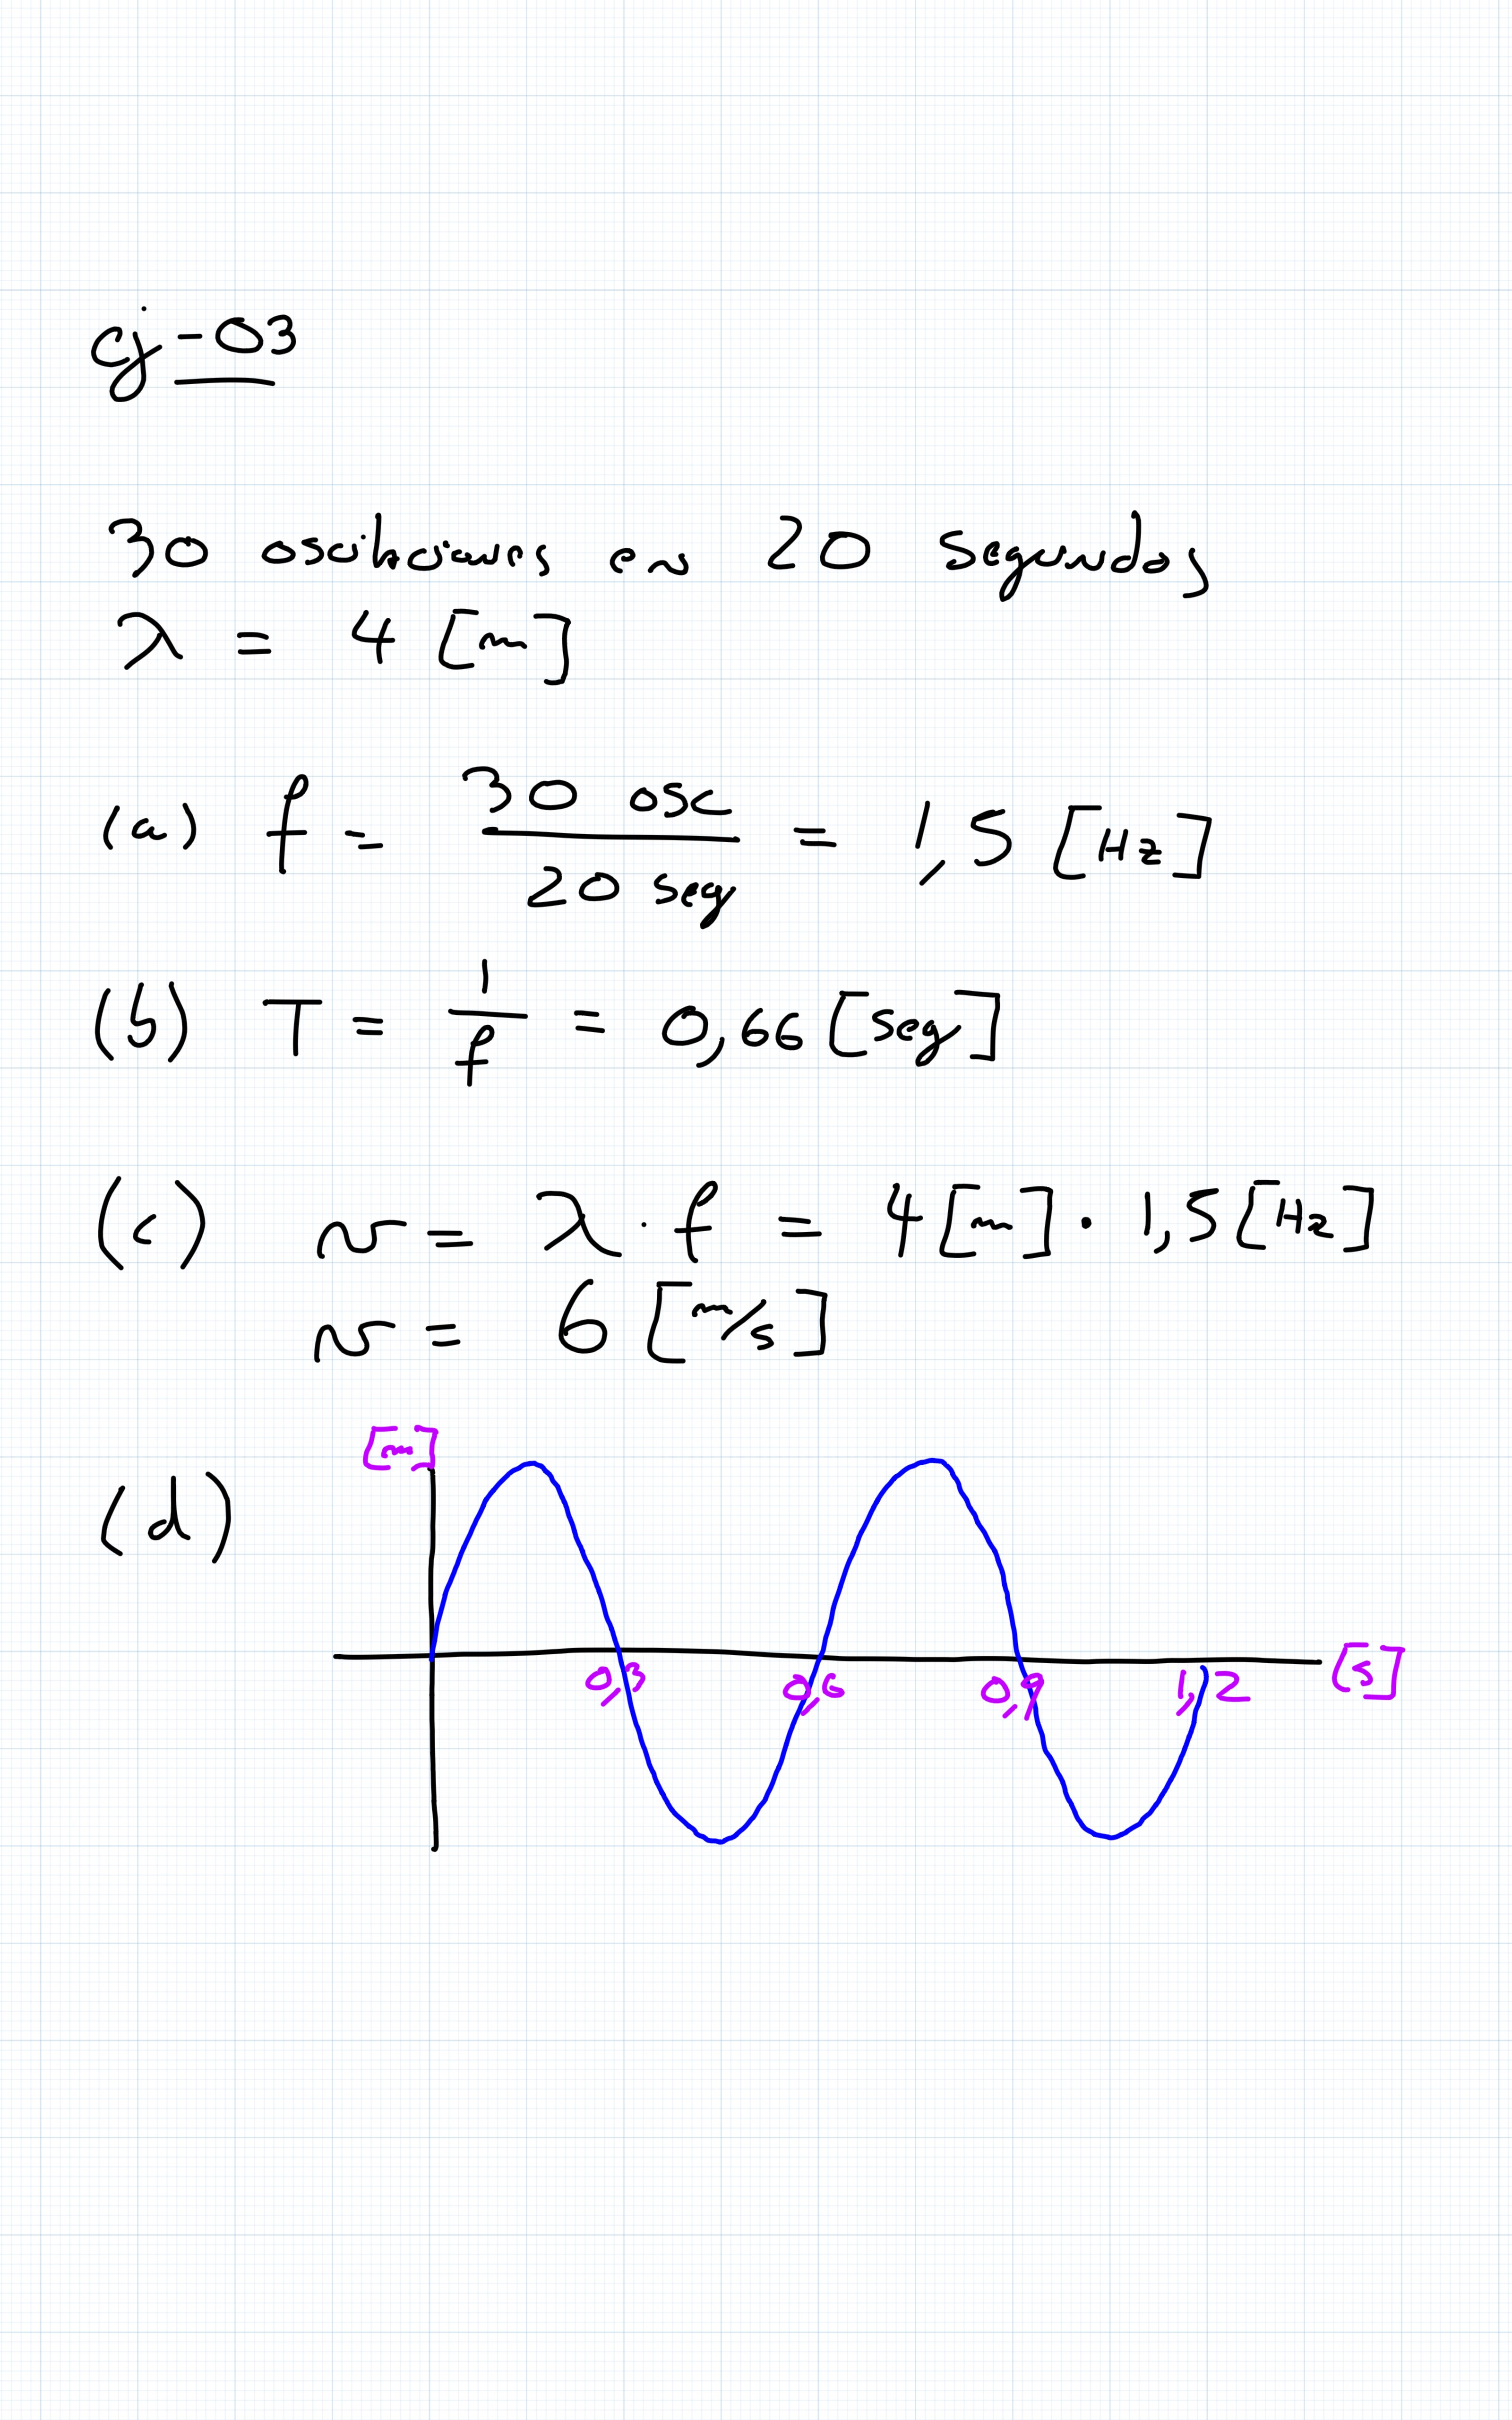 ej-03
30 oscilaciones en 20 segundos
λ = 4 [m]
(a) f = 30 osc / 20 seg = 1,5 [Hz]
(b) T = 1 / f = 0,66 [seg]
(c) v = λ · f = 4 [m] · 1,5 [Hz]
v = 6 [m/s]
[m]
(d)
0,3 0,6 0,9 1,2 [s]